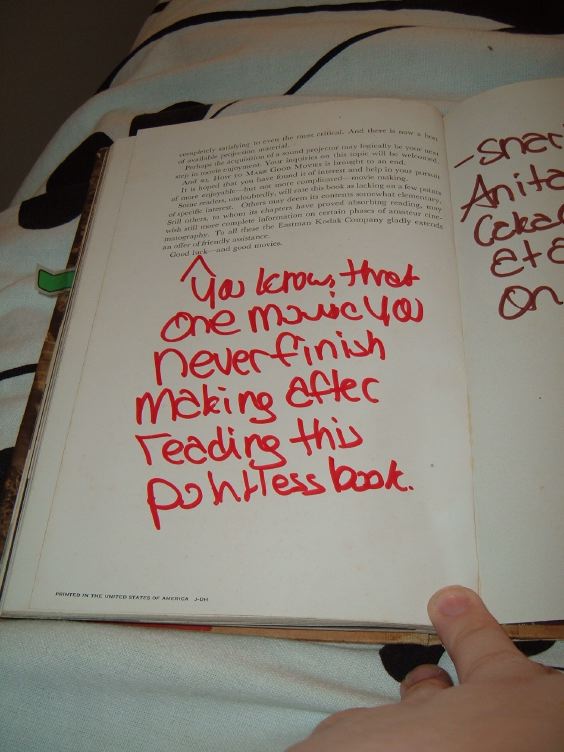 completely satisfying to even the most critical. And there is now a host
of available projection material.
Perhaps the acquisition of a sound projector may logically be your next
step in movie enjoyment. Your inquiries on this topic will be welcomed.
And so HOW TO MAKE GOOD MOVIES is brought to an end.
It is hoped that you have found it of interest and help in your pursuit
of more enjoyable—but not more complicated—movie making.
Some readers, undoubtedly, will rate this book as lacking on a few points
of specific interest. Others may deem its contents somewhat elementary.
Still others, to whom its chapters have proved absorbing reading, may
wish still more complete information on certain phases of amateur cine-
matography. To all these the Eastman Kodak Company gladly extends
an offer of friendly assistance.
Good luck—and good movies.
You know, that
one movie you
never finish
making after
reading this
pointless book.
PRINTED IN THE UNITED STATES OF AMERICA J-DH
Anita
on